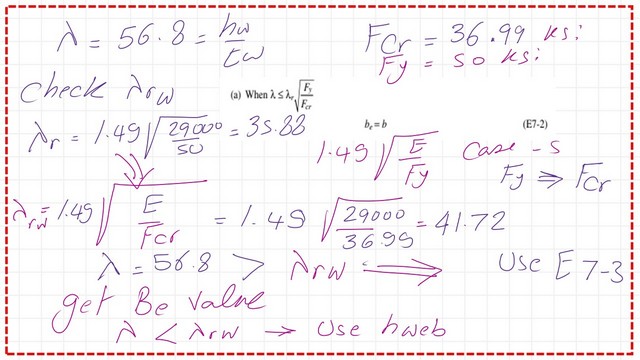 λ = 56.8 = hw/tw
Fcr = 36.99 ksi
Fy = 50 ksi
Check λrw
(a) When λ ≤ λr √(Fy/Fcr)
be = b (E7-2)
λr = 1.49 √(29000/50) = 35.88
1.49 √(E/Fy) Case -5
Fy ⇒ Fcr
λrw = 1.49 √(E/Fcr) = 1.49 √(29000/36.99) = 41.72
λ = 56.8 > λrw ⟹ Use E7-3
get Be value
λ < λrw → Use hweb